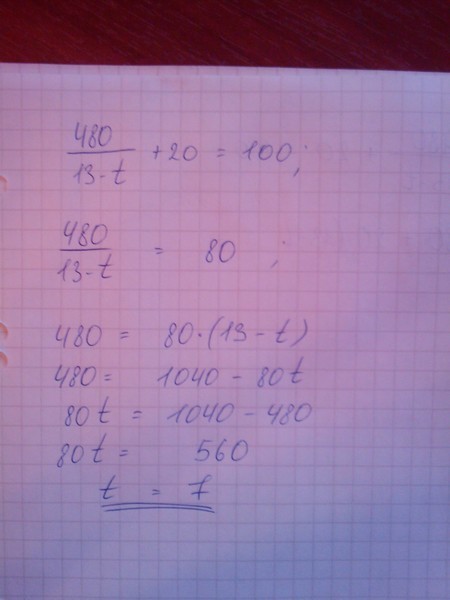 480/(13-t) + 20 = 100;
480/(13-t) = 80;
480 = 80·(13-t)
480 = 1040 - 80t
80t = 1040 - 480
80t = 560
t = 7